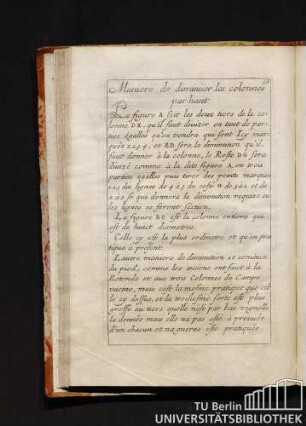 Maniere de diminuer les colonnes
par haut
La figure A soit les deux tiers de la co
lonne DE, qu'il faut divizer en tant de par
ties egalles qu'on vondra qui sont Icy mar
quéz 2 & 3 4, et ED sera la diminution qu'il
faut donner à la colonne, le Reste
divizé comme à la ditte figure A en trois
parties egalles puis tirer des points marquez
des lignes de
qui donnera la diminution requize ou
les lignes se feront section.
La figure BC est la colonne entiere qui
est de huit diametres
Celle cy est la plus ordinaire et qu'on pra
tique à present.
L'autre maniere de diminution se comence
du pied, comme les antiens ont fait à la
Rotonde et aux trois Colomnes de Campo
vacino, mais c'est la moins pratiquée que cel
le cy dessus, et la troisiesme sorte est plus
grosse au tiers quelle n'est par bas vignolle
la donne mais elle n'a pas esté à preuvée
d'un chacun et na gueres esté pratiquée.
TU Berlin
UNIVERSITÄTSBIBLIOTHEK